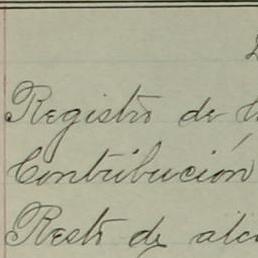 Registro de
Contribución
Resto de